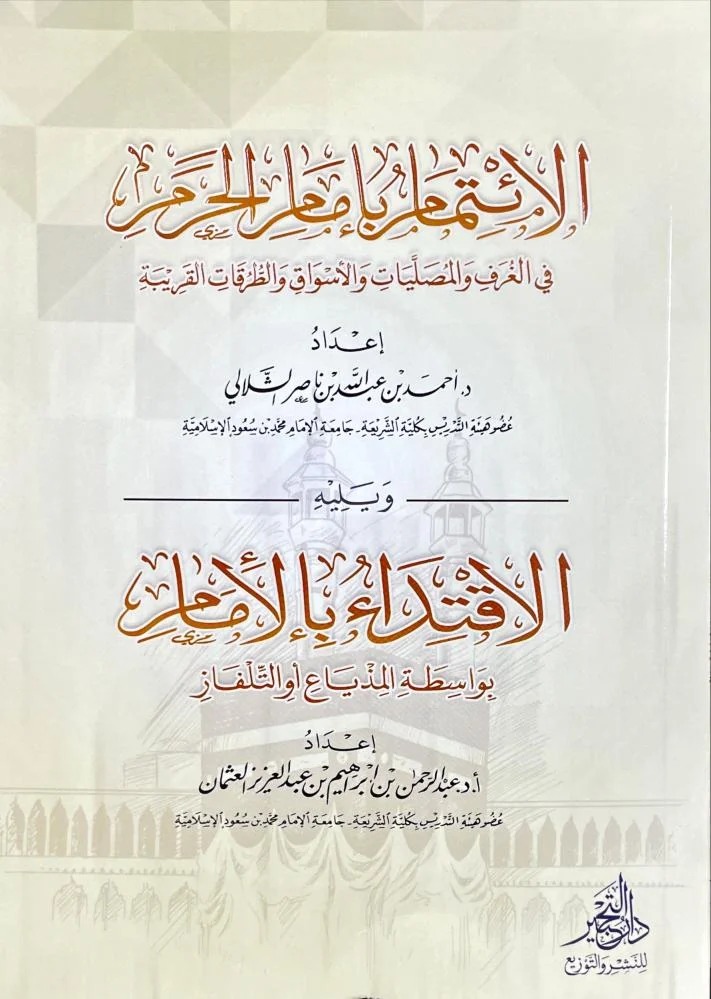 الائتمام بإمام الحرم
في الغرف والمصليات والأسواق والطرقات القريبة
إعداد
د. أحمد بن عبدالله بن ناصر الشلالي
عضو هيئة التدريس بكلية الشريعة - جامعة الإمام محمد بن سعود الإسلامية
ويليه
الاقتداء بالأمام
بواسطة المذياع أو التلفاز
إعداد
أ.د عبدالرحمن بن إبراهيم بن عبدالعزيز العثمان
عضو هيئة التدريس بكلية الشريعة - جامعة الإمام محمد بن سعود الإسلامية
دار التحبير
للنشر والتوزيع